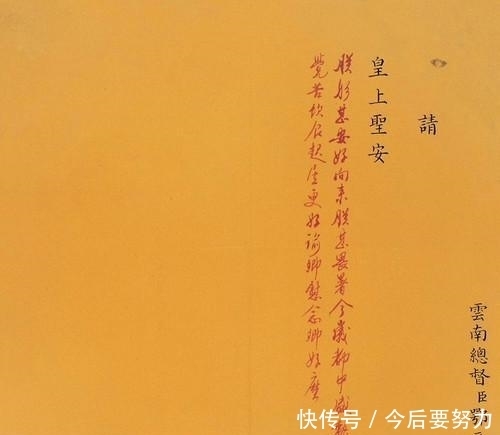 雲南總督臣鄂
請
皇上聖安
朕躬甚安好向來朕甚畏暑今歲都中盛熱
覺苦飲食起居更好諭卿慰念卿好麼
快传号/今后要努力